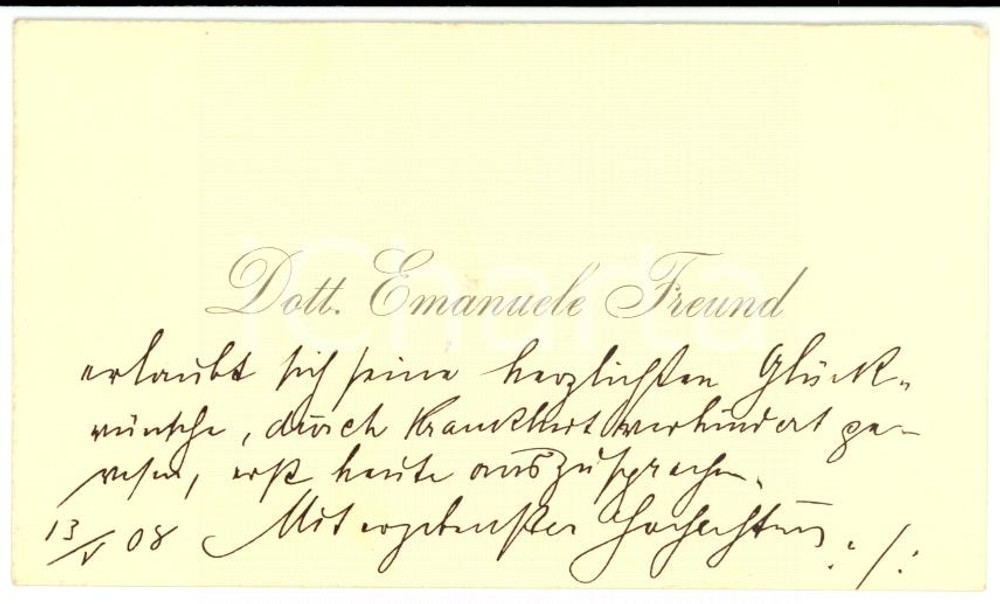 iCharta
Dott. Emanuele Freund
erlaubt sich seine herzlichsten Glück-
wünsche, durch Krankheit verhindert ge-
wesen, erst heute auszusprechen.
13/V 08 Mit ergebenster Hochachtung ./: